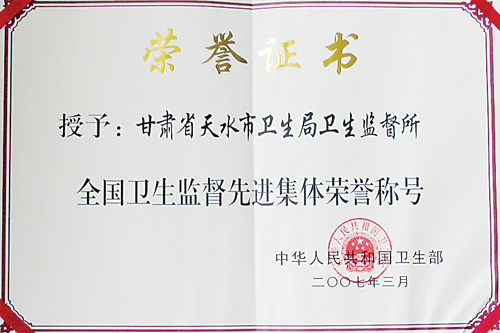 荣誉证书
授予：甘肃省天水市卫生局卫生监督所
全国卫生监督先进集体荣誉称号
中华人民共和国卫生部
二〇〇七年三月